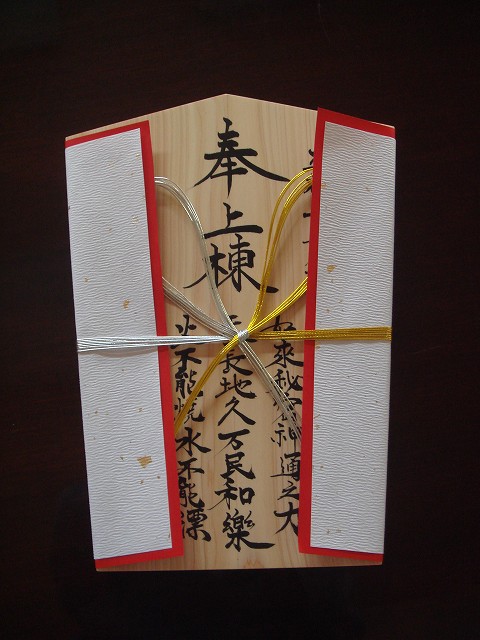 奉上棟
如來秘密神通之大
天長地久万民和樂
火不能燒水不能漂